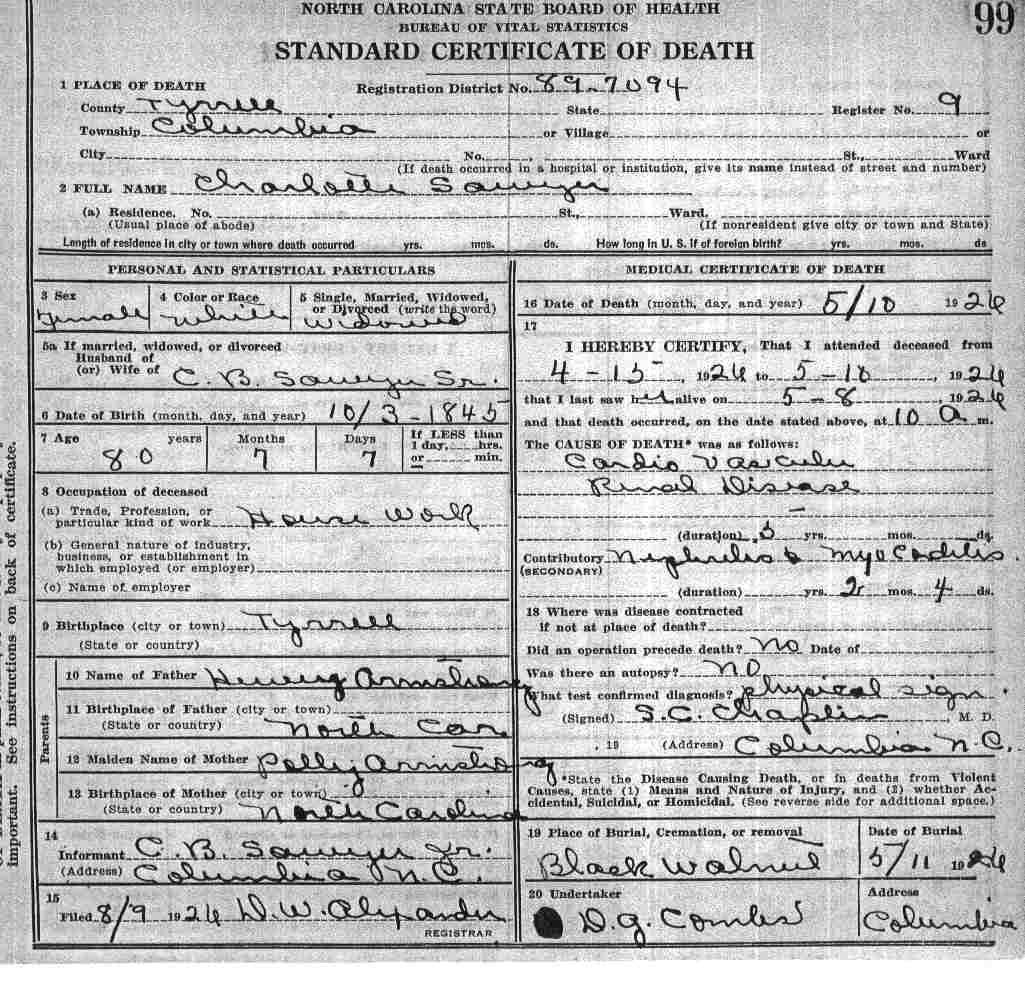 NORTH CAROLINA STATE BOARD OF HEALTH
BUREAU OF VITAL STATISTICS
STANDARD CERTIFICATE OF DEATH
99
1 PLACE OF DEATH Registration District No. 89-7094
County Tyrrell State Register No. 9
Township Columbia or Village or
City No. , St., Ward
(If death occurred in a hospital or institution, give its name instead of street and number)
2 FULL NAME Charlotte Sawyer
(a) Residence. No. St., Ward.
(Usual place of abode) (If nonresident give city or town and State)
Length of residence in city or town where death occurred yrs. mos. ds. How long in U. S. if of foreign birth? yrs. mos. ds
PERSONAL AND STATISTICAL PARTICULARS
3 Sex 4 Color or Race 5 Single, Married, Widowed, or Divorced (write the word)
Female White Widowed
5a If married, widowed, or divorced
Husband of
(or) Wife of C. B. Sawyer Sr.
6 Date of Birth (month, day, and year) 10/3-1845
7 Age years Months Days If LESS than 1 day, hrs. or min.
80 7 7
8 Occupation of deceased
(a) Trade, Profession, or
particular kind of work House Work
(b) General nature of industry,
business, or establishment in
which employed (or employer)
(c) Name of employer
9 Birthplace (city or town) Tyrrell
(State or country)
Parents
10 Name of Father Armstrong
11 Birthplace of Father (city or town)
(State or country) North Car
12 Maiden Name of Mother Polly Armstrong
13 Birthplace of Mother (city or town)
(State or country) North Carolina
14
Informant C. B. Sawyer Jr.
(Address) Columbia N.C.
15
Filed 8/9 1926 D. W. Alexander
REGISTRAR
MEDICAL CERTIFICATE OF DEATH
16 Date of Death (month, day, and year) 5/10 1926
17
I HEREBY CERTIFY, That I attended deceased from
4-15, 1926 to 5-10, 1926
that I last saw her alive on 5-8, 1926
and that death occurred, on the date stated above, at 10 a m.
The CAUSE OF DEATH* was as follows:
Cardio Vascular
Renal Disease
(duration) yrs. mos. ds.
Contributory Nephritis & Myocarditis
(SECONDARY)
(duration) yrs. 2 mos. 4 ds.
18 Where was disease contracted
if not at place of death?
Did an operation precede death? No Date of
Was there an autopsy? No
What test confirmed diagnosis? physical sign.
(Signed) S. C. Chaplin, M. D.
, 19 (Address) Columbia N.C.
*State the Disease Causing Death, or in deaths from Violent
Causes, state (1) Means and Nature of Injury, and (2) whether Ac-
cidental, Suicidal, or Homicidal. (See reverse side for additional space.)
19 Place of Burial, Cremation, or removal Date of Burial
Black Walnut 5/11 1926
20 Undertaker Address
D. G. Combs Columbia
Important. See instructions on back of certificate.